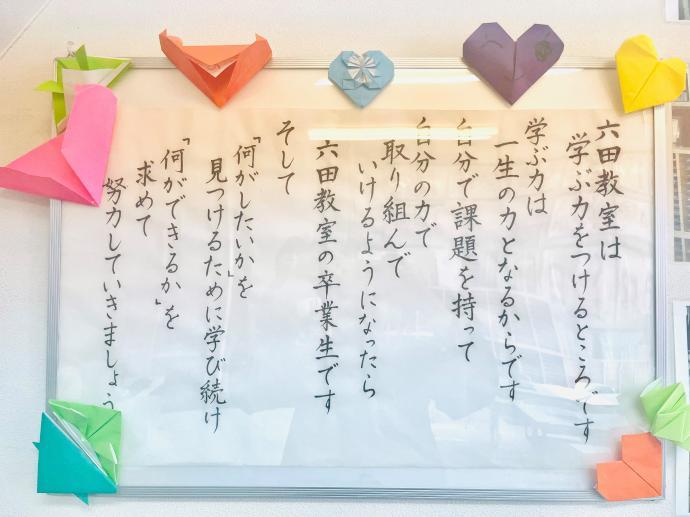 六田教室は
学ぶ力をつけるところです
学ぶ力は
一生の力となるからです
自分で課題を持って
自分の力で
取り組んで
いけるようになったら
六田教室の卒業生です
そして
「何がしたいか」を
見つけるために学び続け
「何ができるか」を
求めて
努力していきましょう